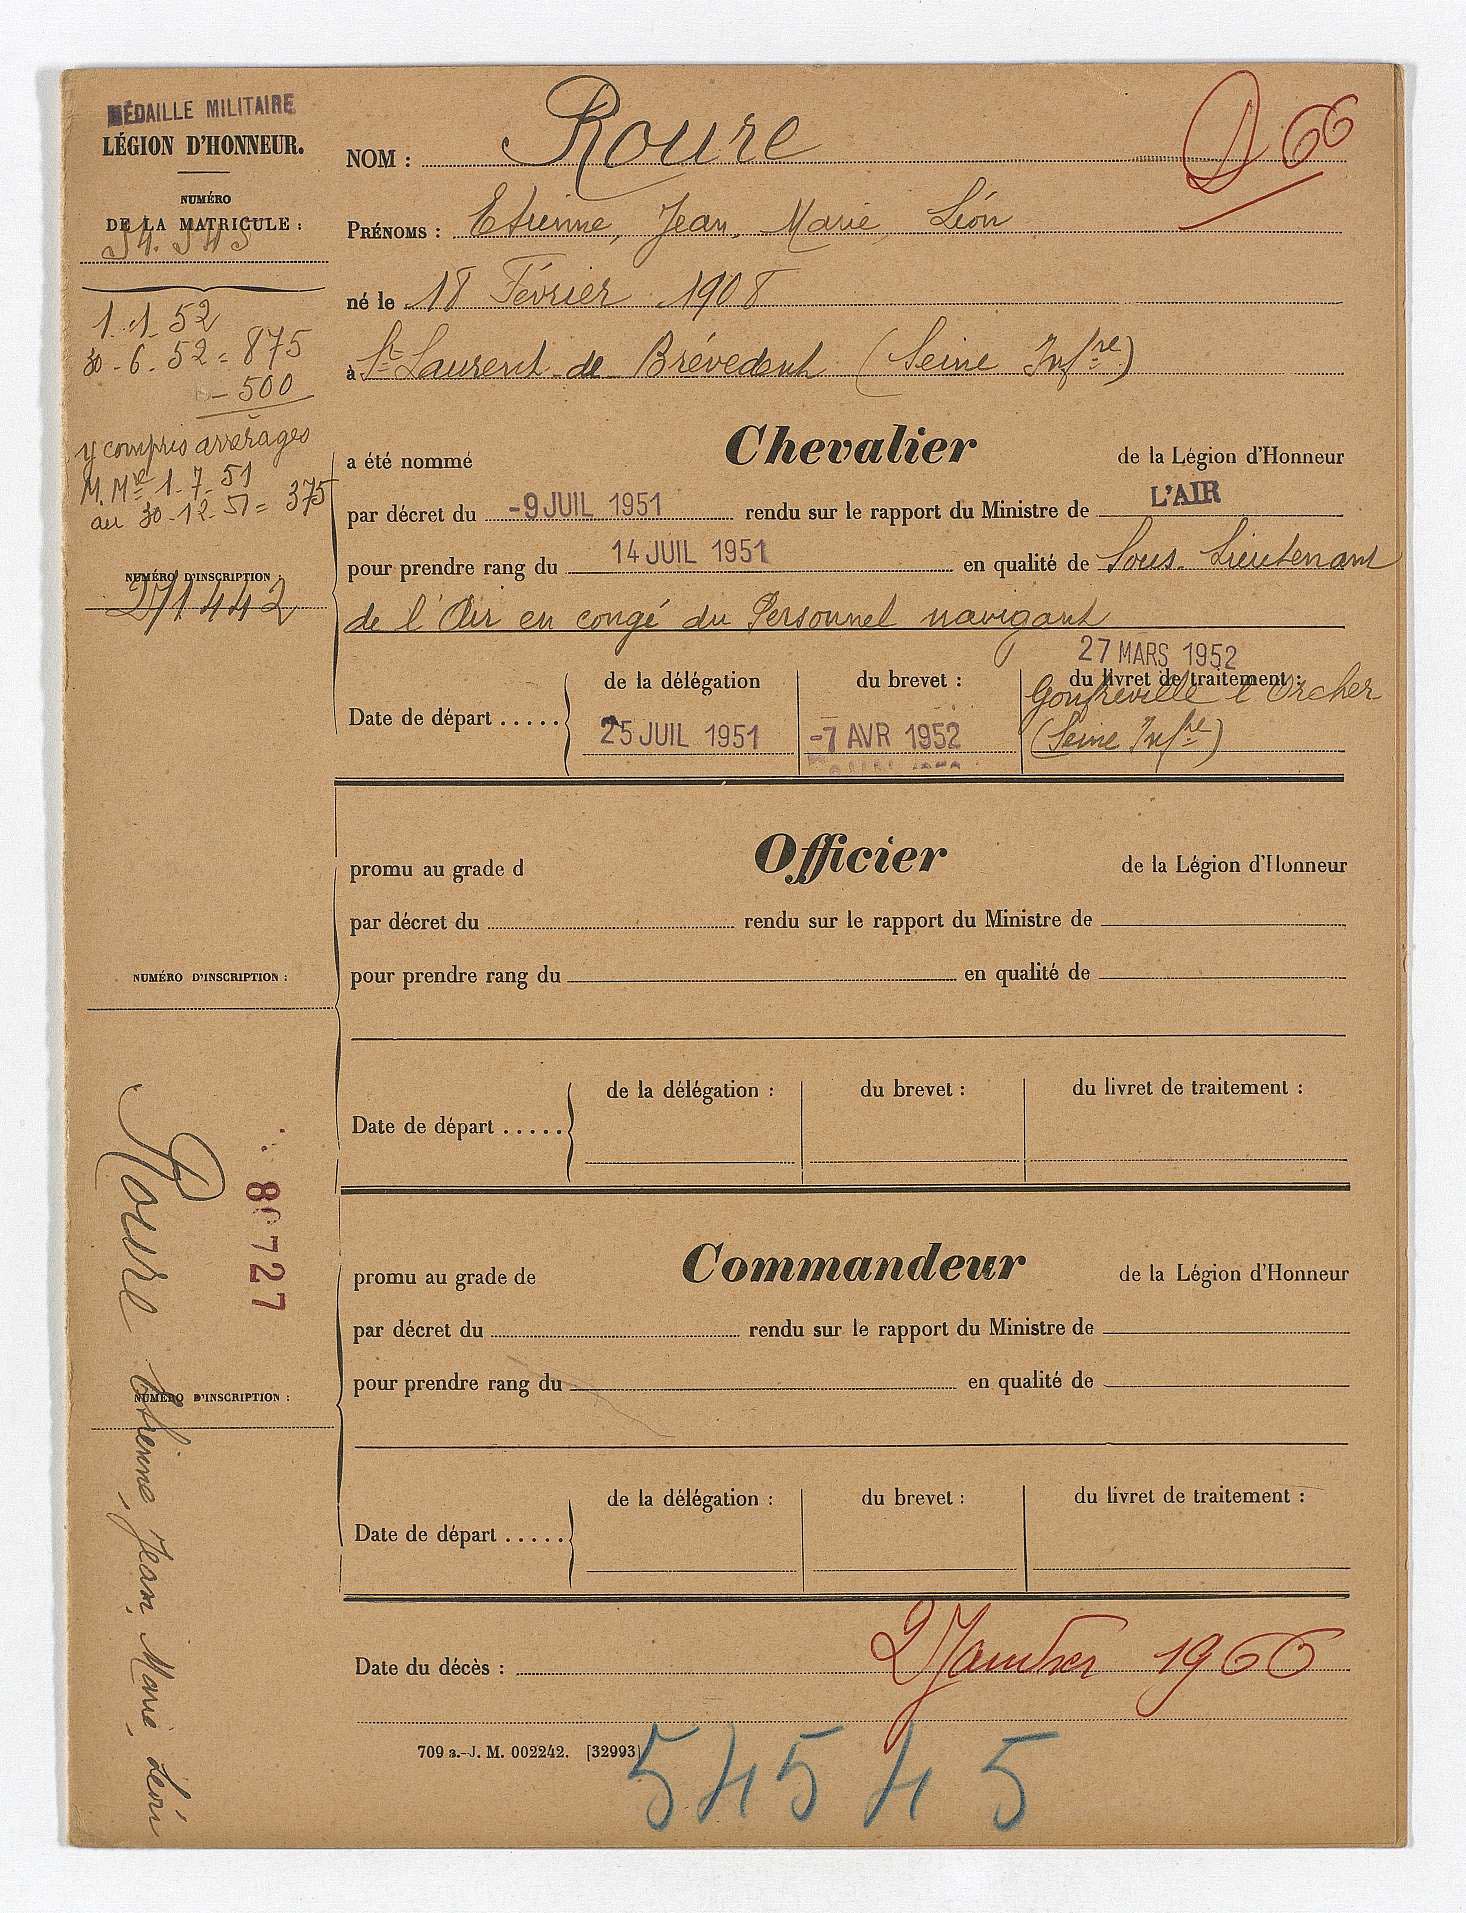 MÉDAILLE MILITAIRE
LÉGION D'HONNEUR.
NUMÉRO
DE LA MATRICULE :
54.545
1.1.52
30-6.52 = 875
-500
y compris arrérages
M.Mre 1-7-51
au 30-12-51 = 375
NUMÉRO D'INSCRIPTION :
271442
D 66
NOM : Roure
PRÉNOMS : Etienne, Jean, Marie, Léon
né le 18 Février 1908
à St Laurent de Brévedent (Seine Infre)
a été nommé Chevalier de la Légion d'Honneur
par décret du -9 JUIL 1951 rendu sur le rapport du Ministre de L'AIR
pour prendre rang du 14 JUIL 1951 en qualité de Sous-Lieutenant
de l'Air en congé du Personnel navigant
27 MARS 1952
de la délégation du brevet : du livret de traitement :
Gonfreville l'Orcher
Date de départ ..... 25 JUIL 1951 -7 AVR 1952 (Seine Infre)
promu au grade d Officier de la Légion d'Honneur
par décret du rendu sur le rapport du Ministre de
pour prendre rang du en qualité de
NUMÉRO D'INSCRIPTION :
de la délégation : du brevet : du livret de traitement :
Date de départ .....
promu au grade de Commandeur de la Légion d'Honneur
par décret du rendu sur le rapport du Ministre de
pour prendre rang du en qualité de
NUMÉRO D'INSCRIPTION :
de la délégation : du brevet : du livret de traitement :
Date de départ .....
Roure Etienne, Jean, Marie, Léon
Date du décès : 2 Janvier 1966
709 a.-J. M. 002242. [32993]
54545